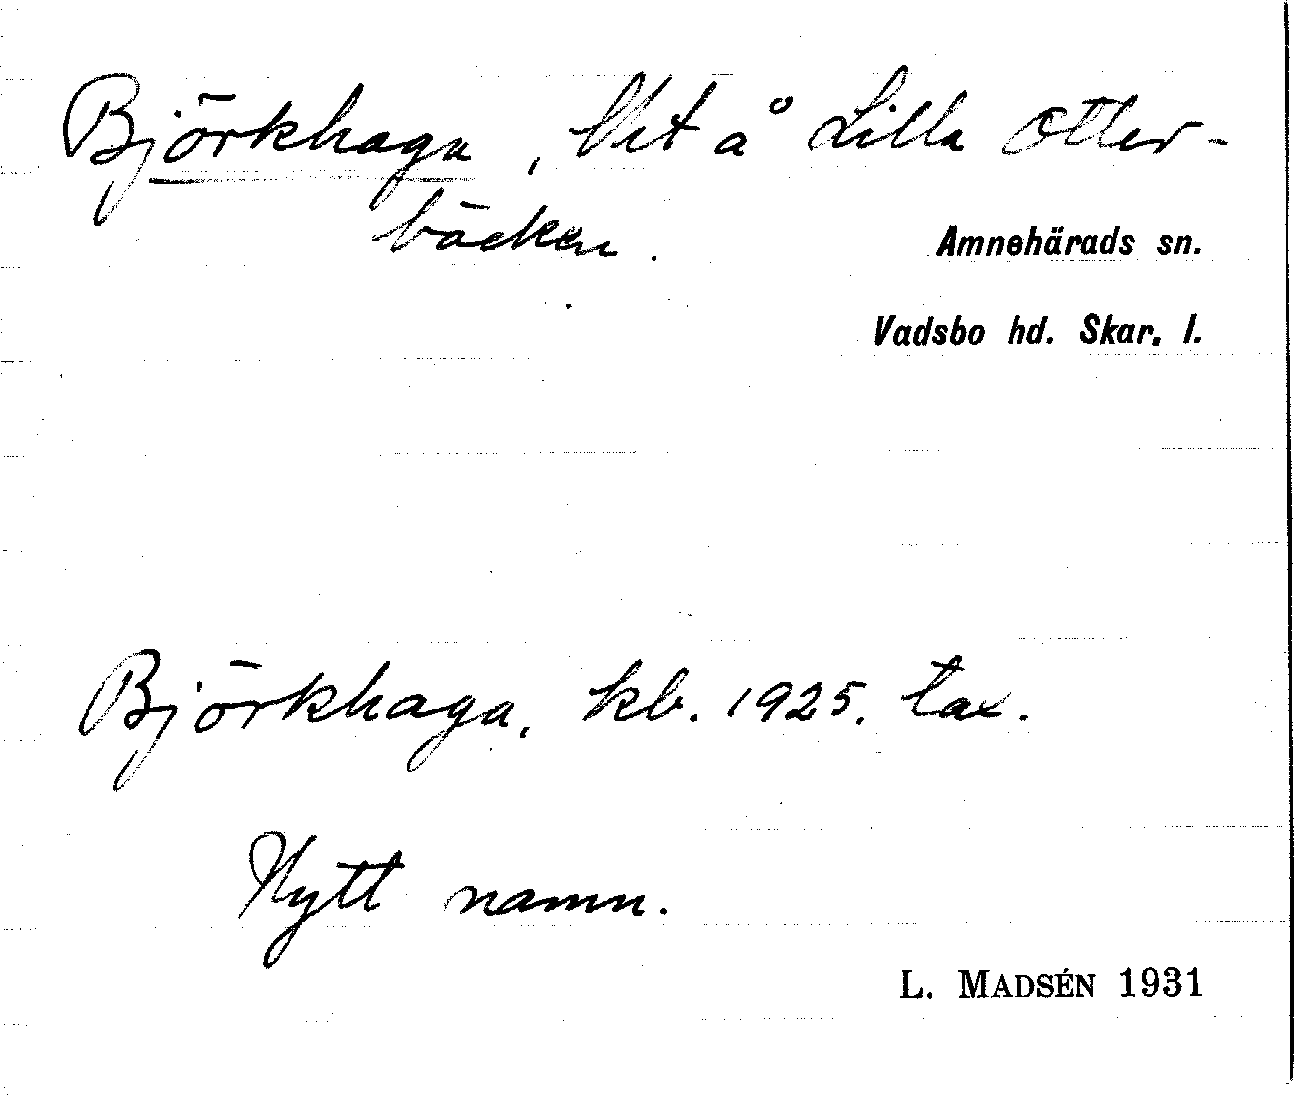 Björkhaga, Vret å Lilla Otter-
bäcken.
Amnehärads sn.
Vadsbo hd. Skar. l.
Björkhaga, kb. 1925, tax.
Nytt namn.
L. MADSÉN 1931